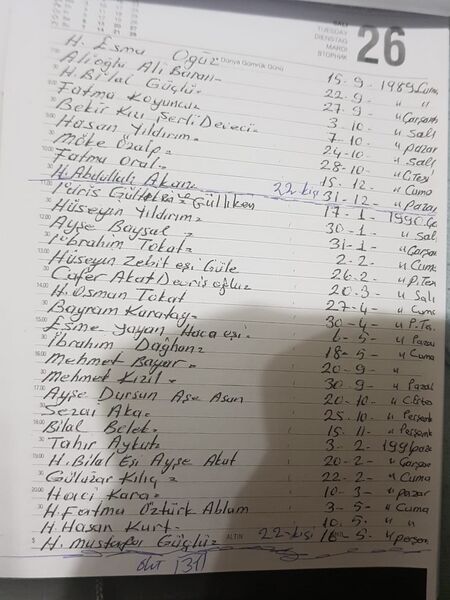 SALI
TUESDAY
DIENSTAG
MARDI
26
Dünya Gümrük Günü
H. Esma Oğuz 15.9-1989 Cuma
Alioğlu Ali Baran- 22-9- " "
H. Bilal Güçlü- 27-9- " Çarşanba
Fatma Koyuncu- 3-10- " Salı
Bekir Kızı Şerli Deveci- 7-10- " pazar
Hasan Yıldırım- 24-10- " Salı
Möke Özalp- 28-10- " C.Tesi
Fatma Oral- 15-12- " Cuma
H. Abdullah Akan- 22-kişi 31-12- " pazar
İdris Güllüken 17-1-1990.Ça
Hüseyin Yıldırım- 30-1- " Salı
Ayşe Baysal- 31-1- " Çarşan
İbrahim Tokat- 2-2- " Cuma
Hüseyin Zebit eşi Güle 26-2- " P.Tes
Cafer Akat Devrişoğlu- 20-3- " Salı
H. Osman Tokat 27-4- " Cuma
Bayram Karatay- 30-4- " P.Te.
Esme Yayan Hoca eşi- 6-5- " Pazar
İbrahim Dağhan- 18-5- " Cuma
Mehmet Bayar- 20-9- "
Mehmet Kızıl- 30-9- " Pazar
Ayşe Dursun Aşe Asan 20-10- " C.Ertes
Sezai Aka- 25-10- " Perşenb
Bilal Belek- 15-11- " Perşenb
Tahir Aykut- 3-2-1991 paze
H. Bilal Eşi Ayşe Akat 20-2- " Çarşan
Gülüzar Kılıç- 22-2- " Cuma
Hacı Kara- 10-3- " pazar
H. Fatma Öztürk Ablam 3-5- " Cuma
H. Hasan Kurt- 10-5- " "
H. Mustafa Güçlü- ALTIN 22-kişi 16-5- " perşen
31